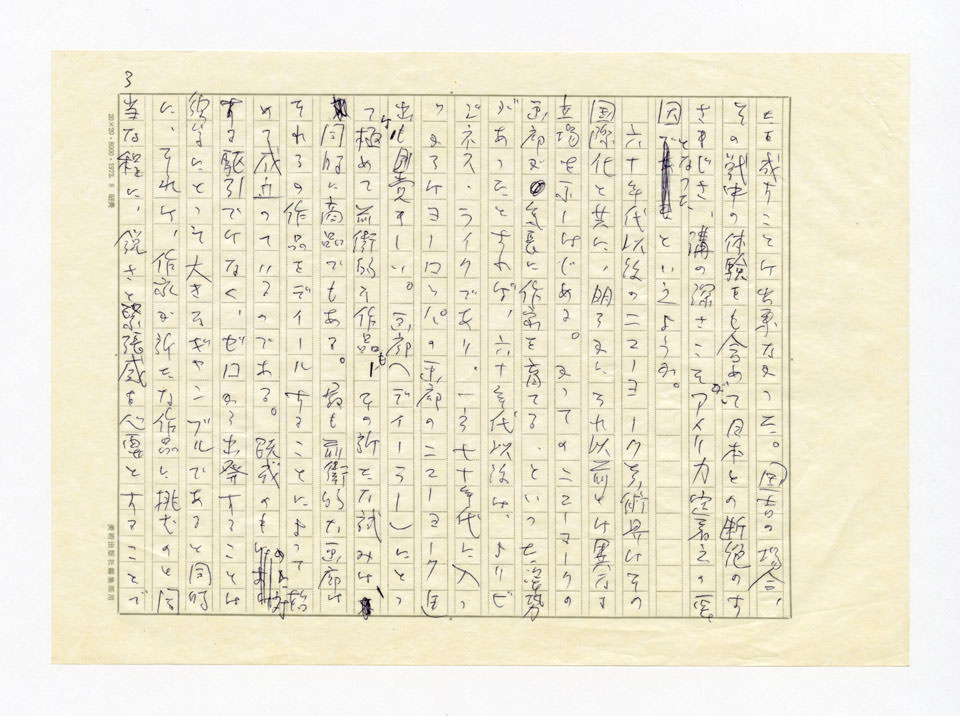 3
とも成すことは出来なかった。国吉の場合、
その戦中の体験をも含めて日本との断絶のす
さまじさ、溝の深さこそがアメリカ定着の要
因となったといえようか。
六十年代以後のニューヨーク美術界はその
国際化と共に、明らかにそれ以前とは異なる
立場を示しはじめる。かつてのニューヨークの
画廊が気長に作家を育てる、といった姿勢
があったとすれば、六十年代以後は、よりビ
ジネス・ライクであり。一方七十年代に入っ
てからはヨーロッパの画廊のニューヨーク進
出も目覚ましい。画廊(ディーラー)にとっ
て極めて前衛的な作品も、その新たな試みは
同時に商品でもある。最も前衛的な画廊は
それらの作品をディールすることによって始
めて成立っているのである。既成のものに対
する駆引ではなく、ゼロから出発することは
彼等にとって大きなギャンブルであると同時
に、それは、作家が新たな作品に挑むのと同
当な程に、鋭さと緊張感を必要とすることで
20×20・5000・1973
美術出版社編集部用